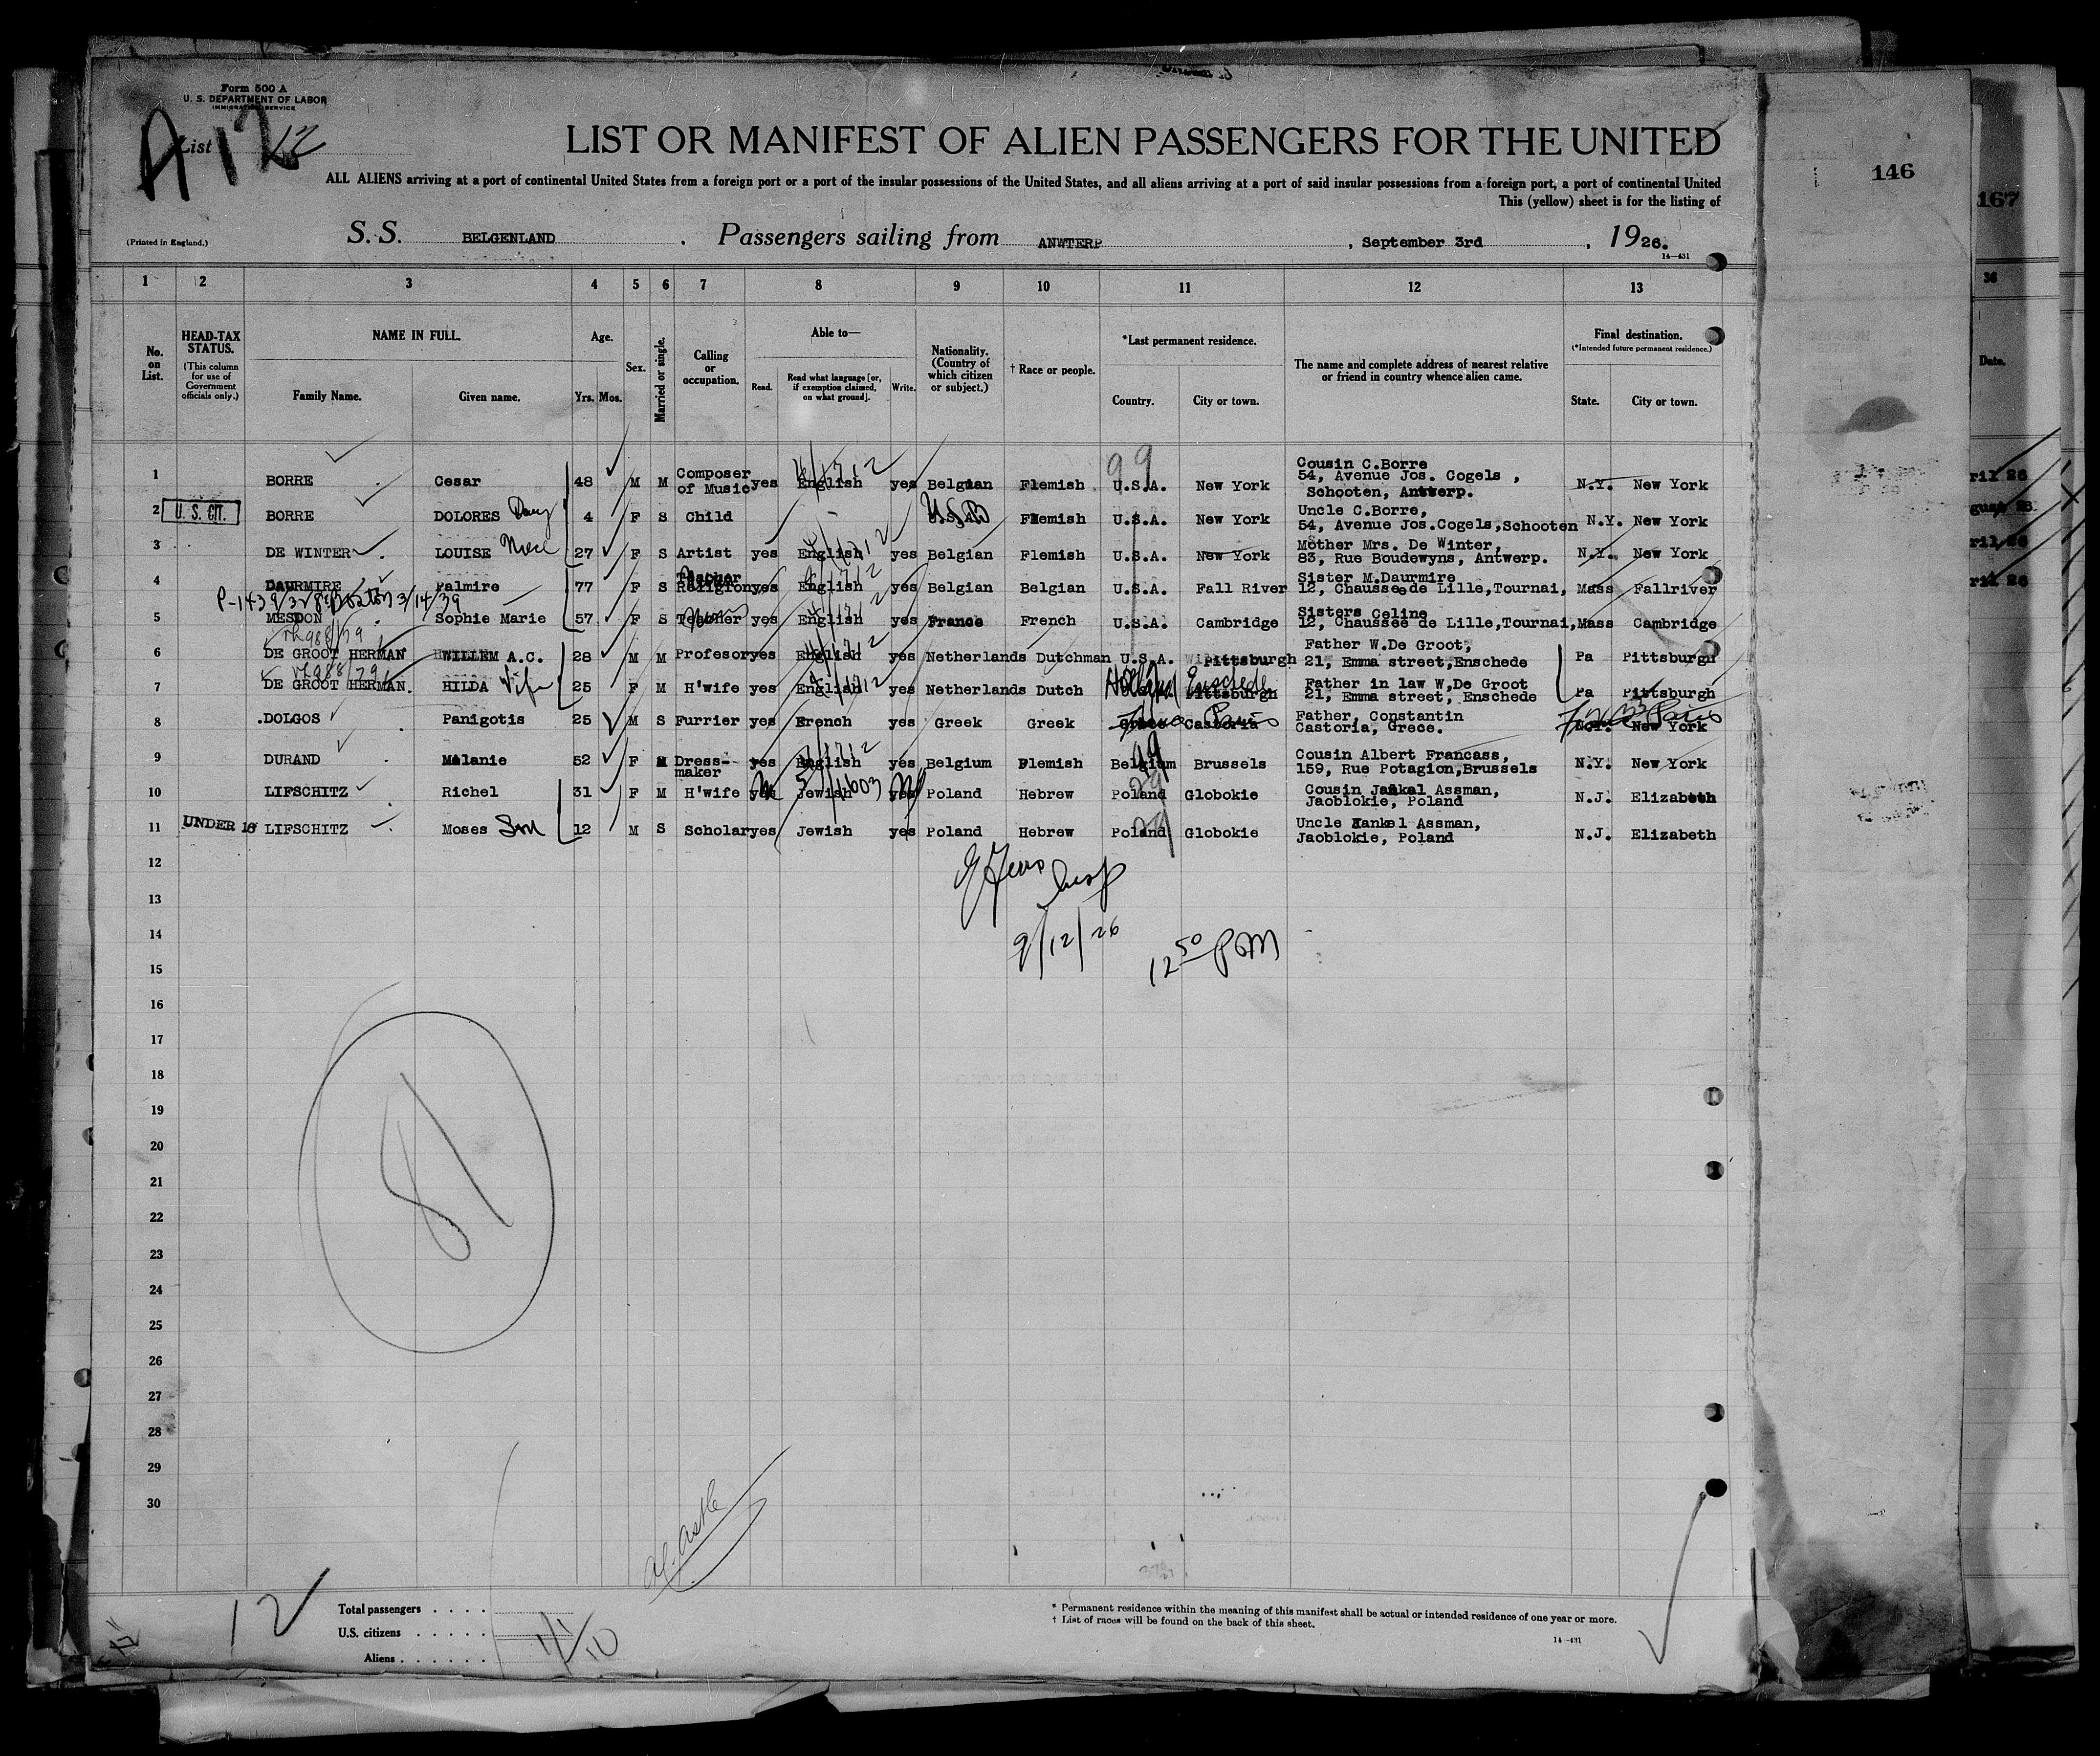 Form 500 A
U. S. DEPARTMENT OF LABOR
IMMIGRATION SERVICE
List 12
A 12
LIST OR MANIFEST OF ALIEN PASSENGERS FOR THE UNITED
146
167
ALL ALIENS arriving at a port of continental United States from a foreign port or a port of the insular possessions of the United States, and all aliens arriving at a port of said insular possessions from a foreign port, a port of continental United
This (yellow) sheet is for the listing of
(Printed in England.) S. S. BELGENLAND . Passengers sailing from ANWTERP , September 3rd , 1926.
14—431
1 2 3 4 5 6 7 8 9 10 11 12 13 36
No. on List.
HEAD-TAX STATUS.
(This column for use of Government officials only.)
NAME IN FULL.
Family Name. Given name.
Age.
Yrs. Mos.
Sex.
Married or single.
Calling or occupation.
Able to—
Read. Read what language [or, if exemption claimed, on what ground]. Write.
Nationality. (Country of which citizen or subject.)
† Race or people.
*Last permanent residence.
Country. City or town.
The name and complete address of nearest relative or friend in country whence alien came.
Final destination.
(*Intended future permanent residence.)
State. City or town.
Date.
99
1 BORRE Cesar 48 M M Composer of Music yes English yes Belgian Flemish U.S.A. New York Cousin C.Borre 54, Avenue Jos. Cogels , Schooten, Antwerp. N.Y. New York
2 U. S. CIT. BORRE DOLORES 4 F S Child Flemish U.S.A. New York Uncle C.Borre, 54, Avenue Jos.Cogels,Schooten N.Y. New York
3 DE WINTER LOUISE Niece 27 F S Artist yes English yes Belgian Flemish U.S.A. New York Mother Mrs. De Winter, 83, Rue Boudewyns, Antwerp. N.Y. New York
4 DAURMIRE Palmire 77 F S Religion yes English yes Belgian Belgian U.S.A. Fall River Sister M.Daurmire 12, Chaussee de Lille,Tournai, Mass Fallriver
3/14/39
5 MESDON Sophie Marie 57 F S Teacher yes English yes France French U.S.A. Cambridge Sisters Celine 12, Chaussee de Lille,Tournai,Mass Cambridge
6 DE GROOT HERMAN WILLEM A.C. 28 M M Profesor yes English yes Netherlands Dutchman U.S.A. Pittsburgh Father W.De Groot, 21, Emma street,Enschede Pa Pittsburgh
7 DE GROOT HERMAN. HILDA Wife 25 F M H'wife yes English yes Netherlands Dutch Holland Enschede Pittsburgh Father in law W,De Groot 21, Emma street, Enschede Pa Pittsburgh
8 .DOLGOS Panigotis 25 M S Furrier yes French yes Greek Greek Castoria Paris Father, Constantin Castoria, Grece. N.Y. New York Paris
9 DURAND Mélanie 52 F M Dress-maker yes English yes Belgium Flemish Belgium Brussels Cousin Albert Francass, 159, Rue Potagion,Brussels N.Y. New York
10 LIFSCHITZ Richel 31 F M H'wife yes Jewish yes Poland Hebrew Poland Globokie Cousin Jankel Assman, Jaoblokie, Poland N.J. Elizabeth
11 UNDER 16 LIFSCHITZ Moses Son 12 M S Scholar yes Jewish yes Poland Hebrew Poland Globokie Uncle Jankel Assman, Jaoblokie, Poland N.J. Elizabeth
12
13
9/12/26
14
12 50 PM
15
16
17
18
19
20
21
22
23
24
25
26
27
28
29
30
81
12
Total passengers . . . .
U.S. citizens . . . . .
Aliens . . . . . .
11/10
* Permanent residence within the meaning of this manifest shall be actual or intended residence of one year or more.
† List of races will be found on the back of this sheet.
14-431